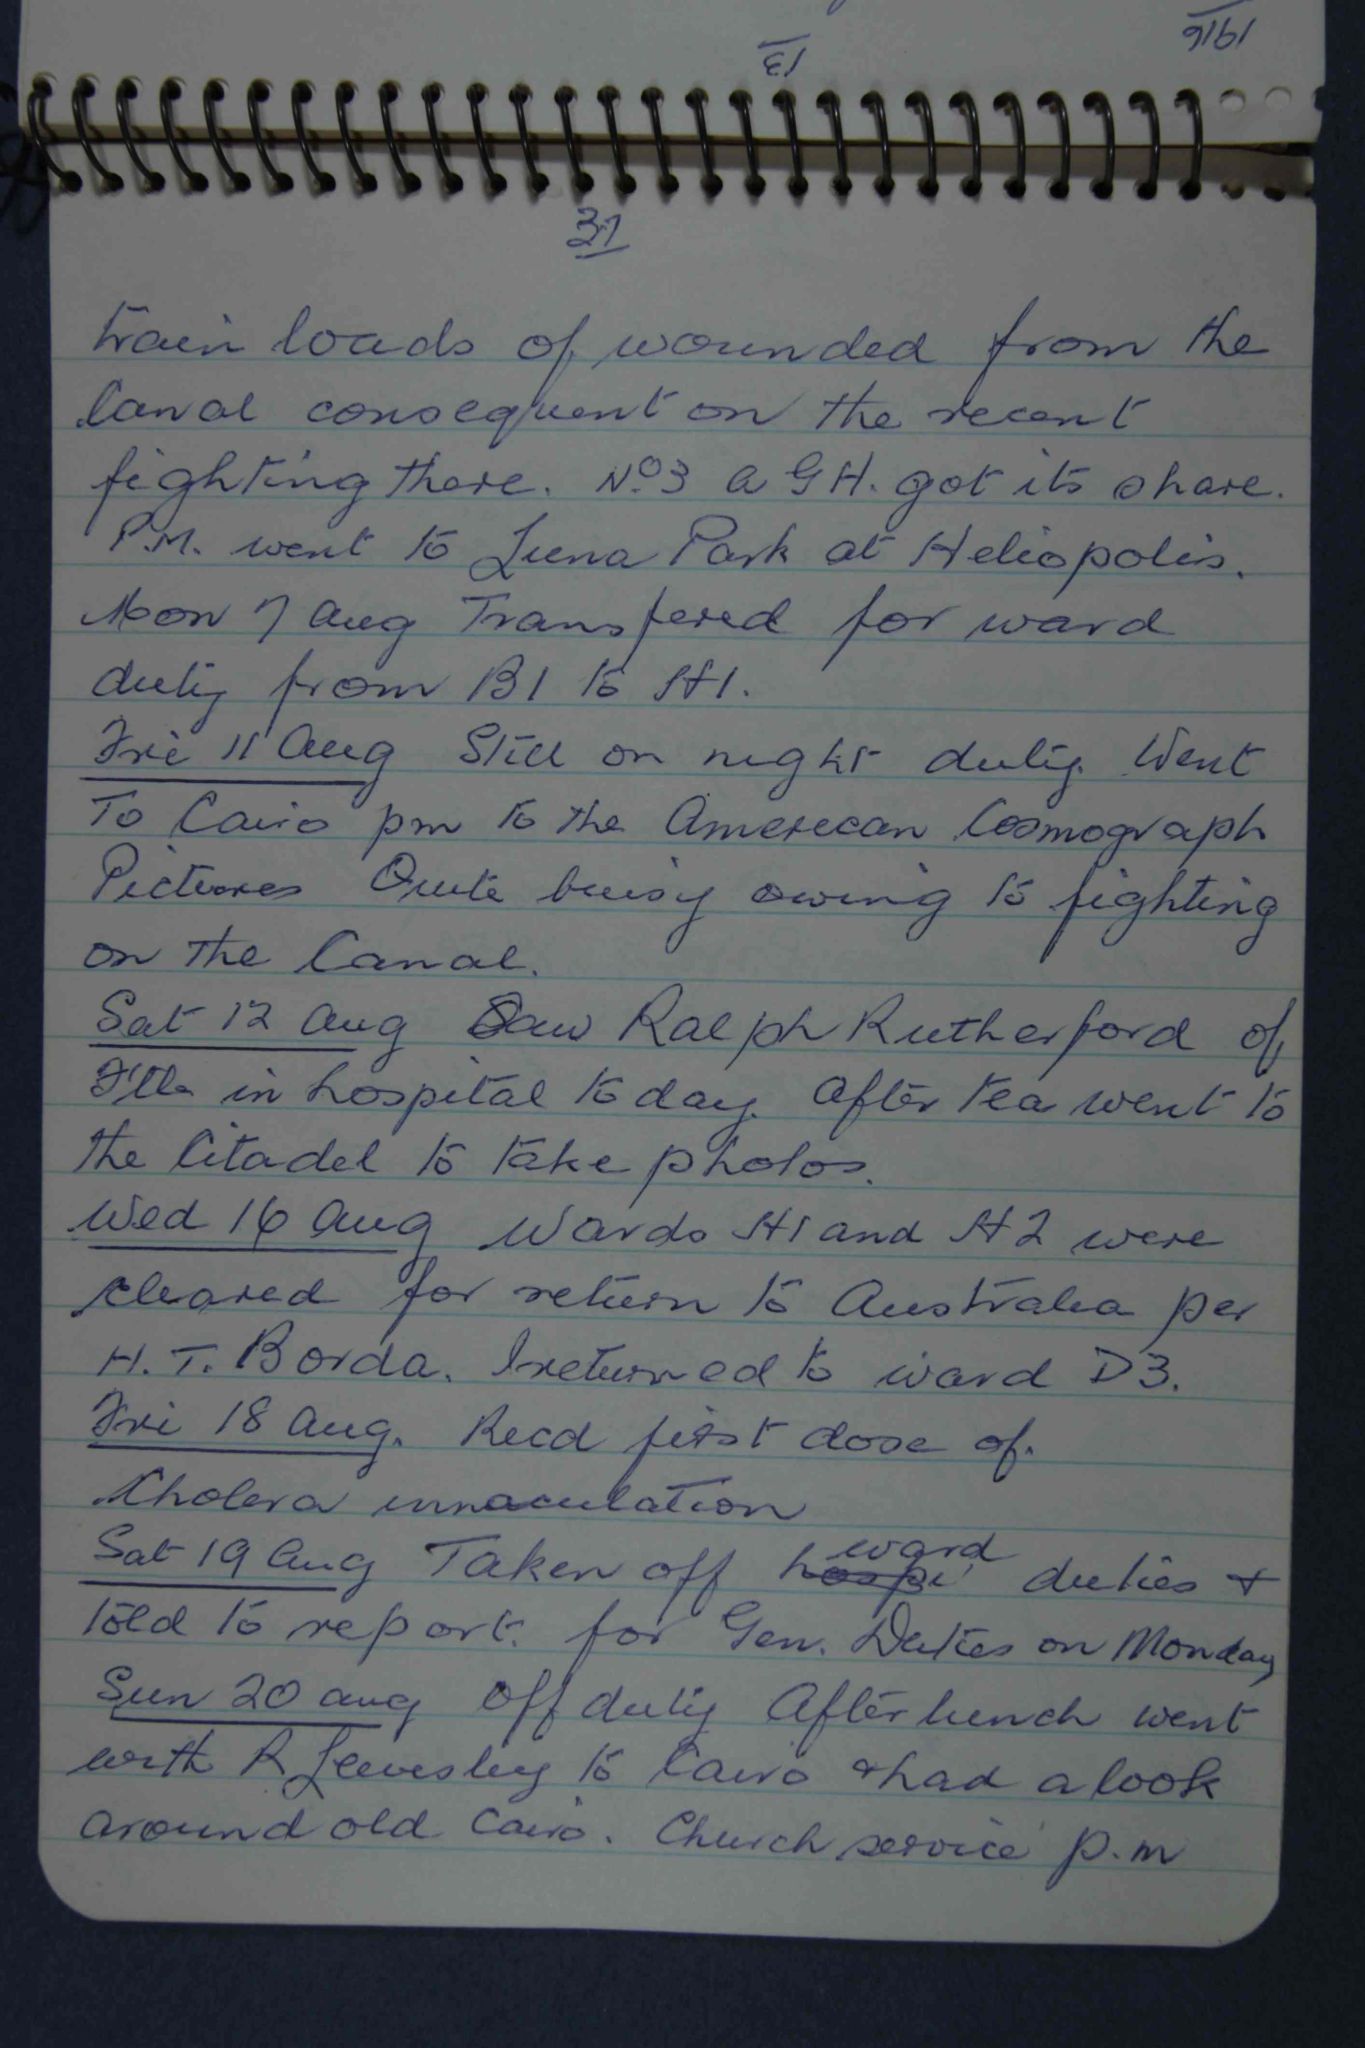 1916
13
31
train loads of wounded from the
Canal consequent on the recent
fighting there. No 3 A G H. got its share.
P.M. went to Luna Park at Heliopolis.
Mon 7 Aug Transfered for ward
duty from B1 to H1.
Fri 11 Aug Still on night duty. Went
To Cairo pm to the American Cosmograph
Pictures Quite buisy owing to fighting
on the Canal.
Sat 12 Aug Saw Ralph Rutherford of
in hospital today. After tea went to
the Citadel to take photos.
Wed 16 Aug Wards H1 and H2 were
cleared for return to Australia per
H. T. Borda. I returned to ward D3.
Fri 18 Aug. Recd first dose of.
Cholera innaculation
ward
Sat 19 Aug Taken off hospi duties +
told to report. for Gen. Duties on Monday
Sun 20 Aug Off duty After lunch went
with R to Cairo + had a look
around old Cairo. Church service p.m